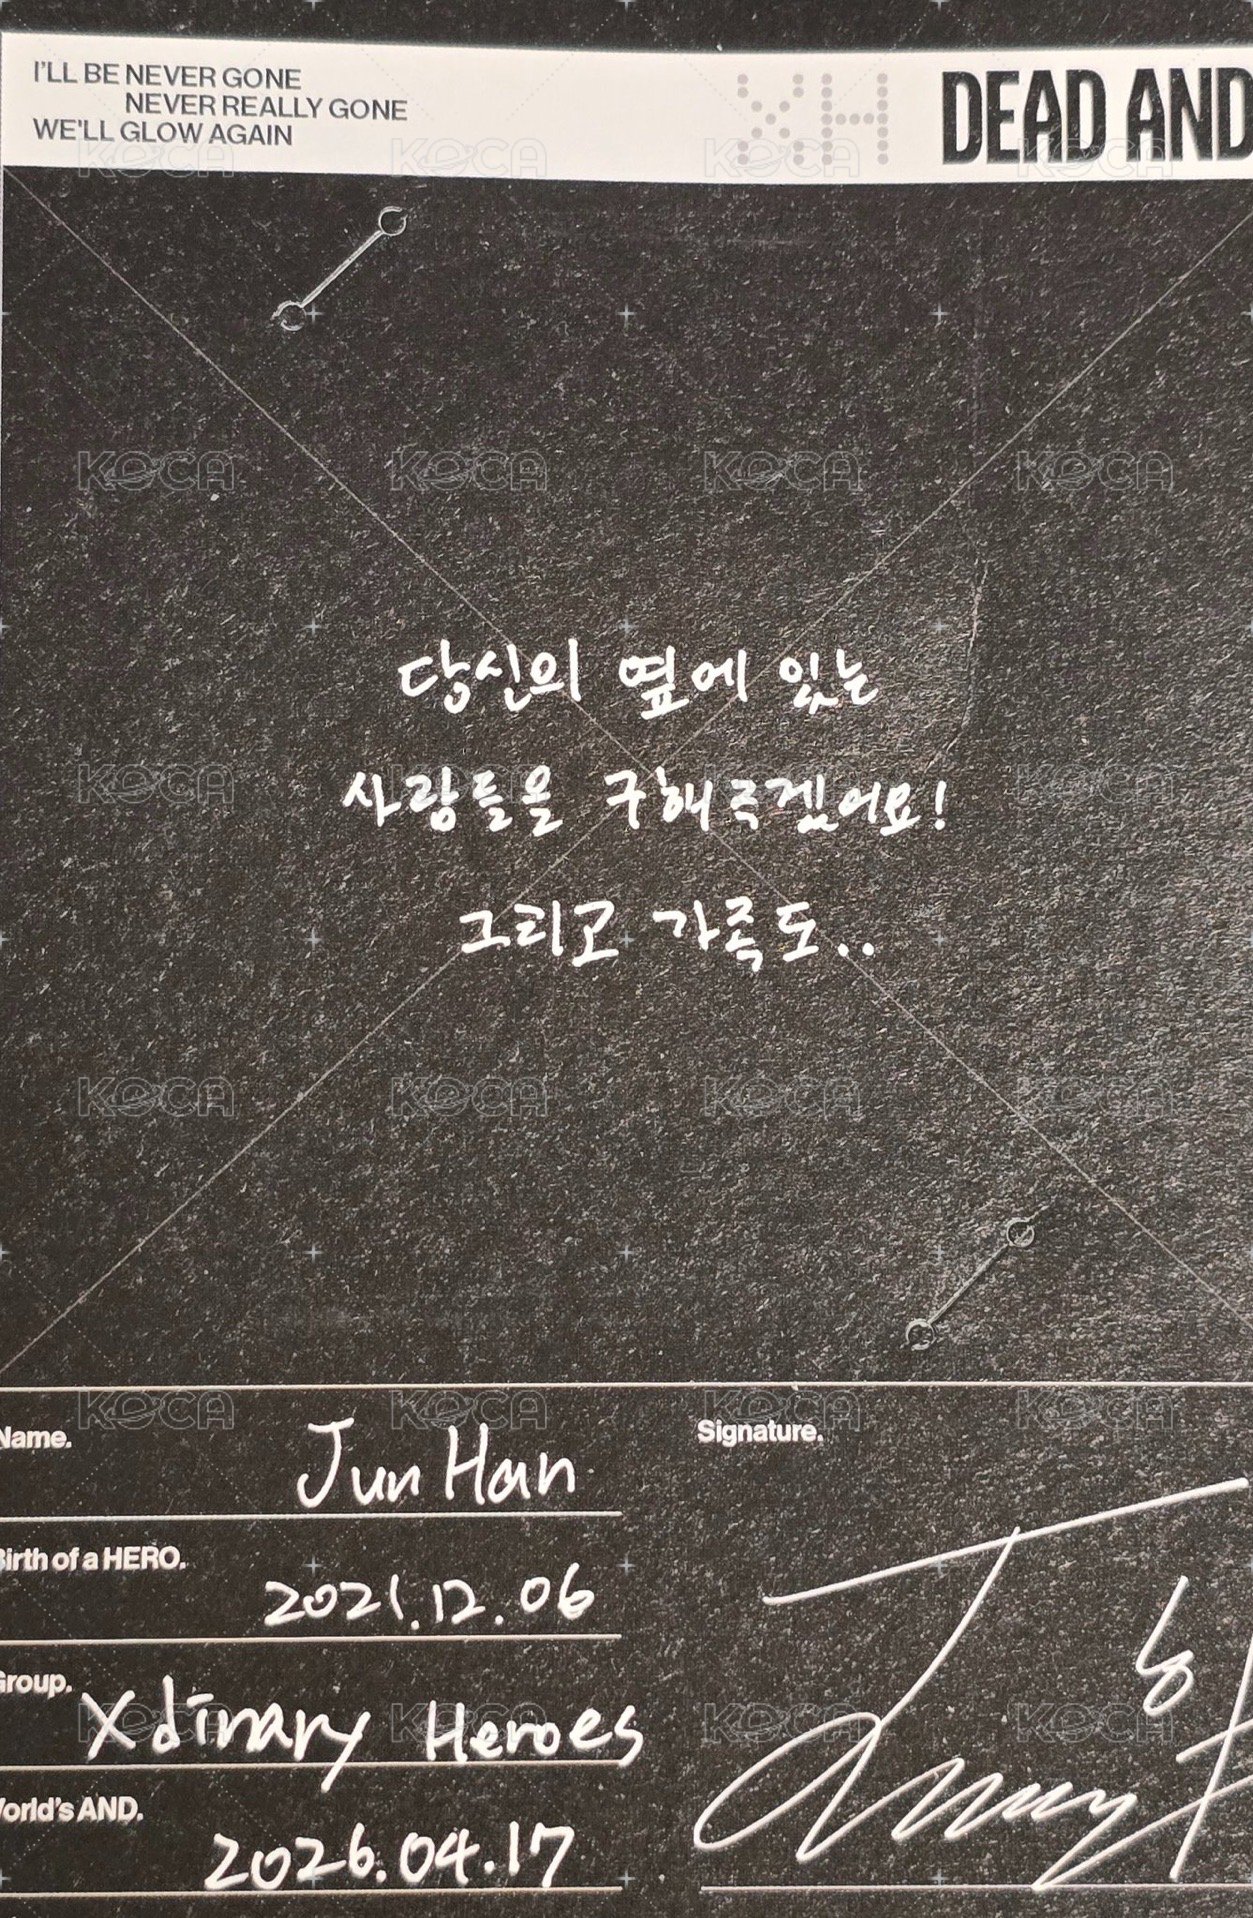 I'LL BE NEVER GONE
NEVER REALLY GONE
WE'LL GLOW AGAIN
XH
DEAD AND
당신의 옆에 있는
사람들을 구해주겠어요!
그리고 가족도..
Name.
Jun Han
Signature.
Birth of a HERO.
2021.12.06
Group.
Xdinary Heroes
World's AND.
2026.04.17
KOCA